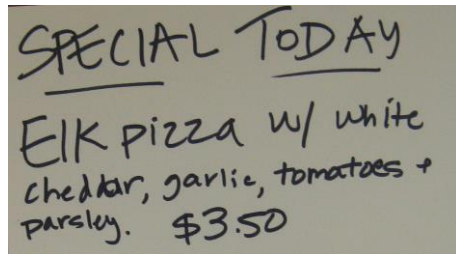 SPECIAL TODAY
Elk pizza w/ white
cheddar, garlic, tomatoes +
parsley. $3.50